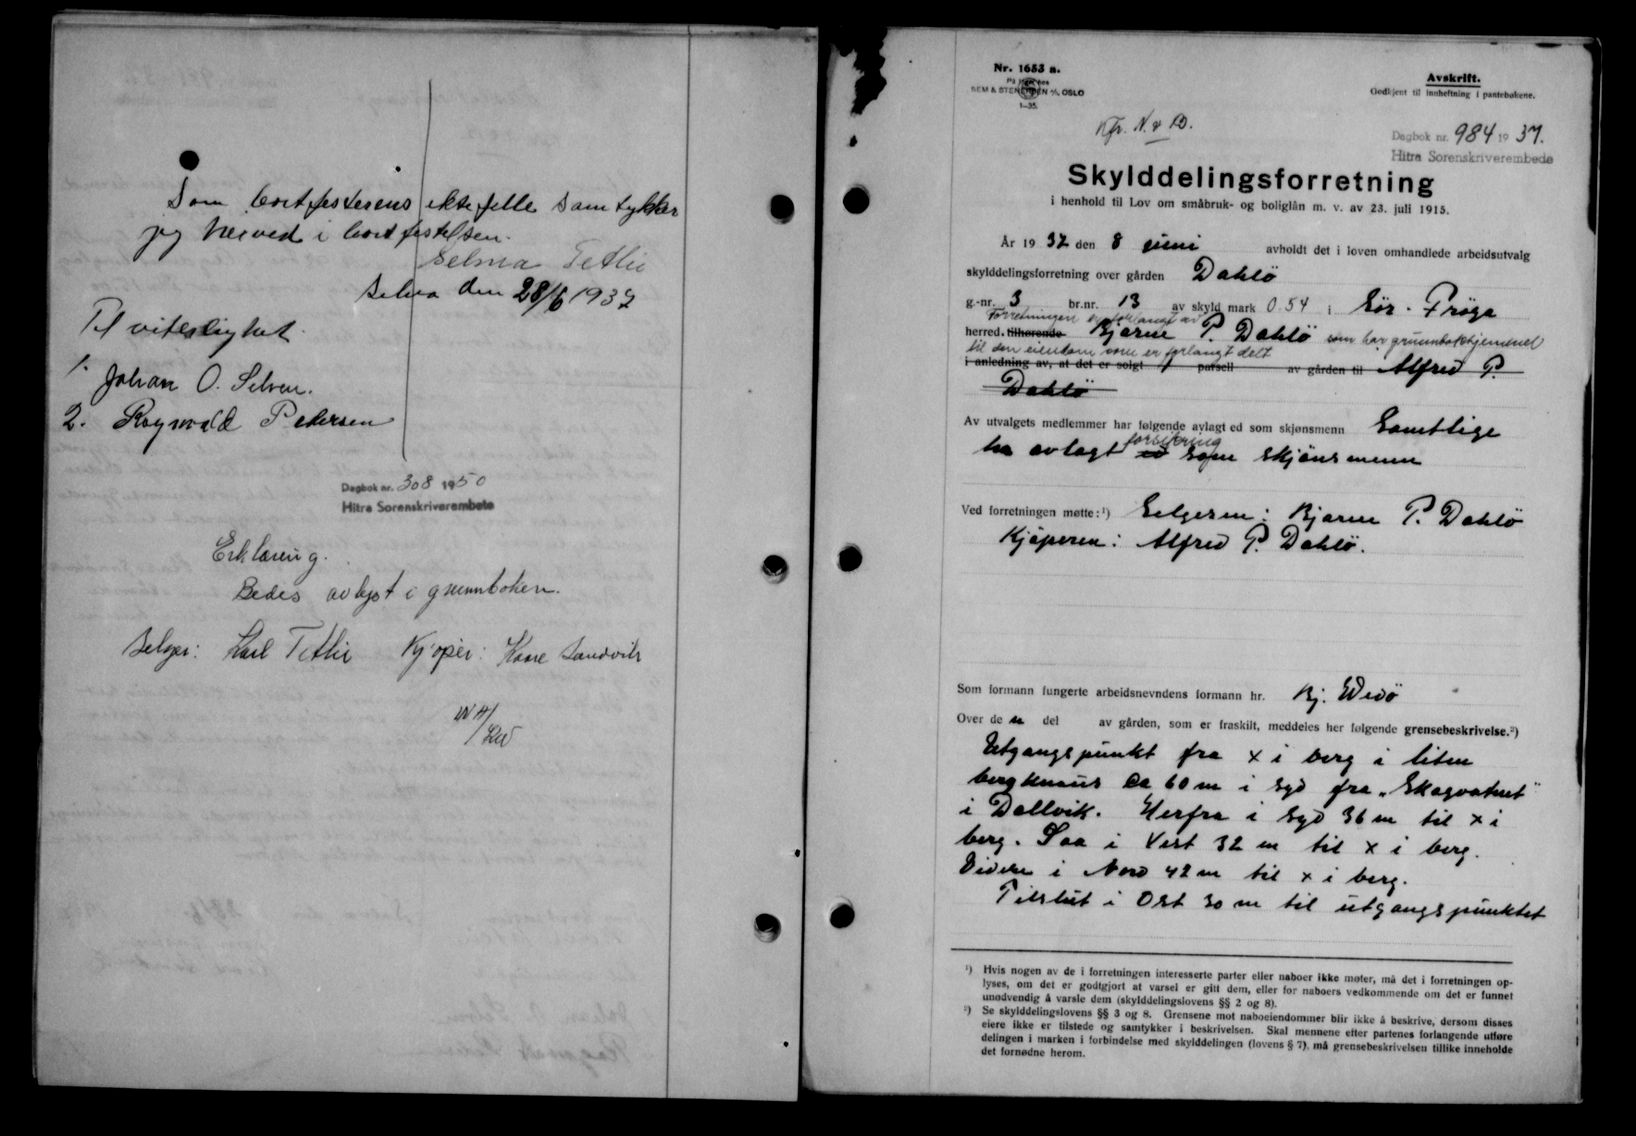 Som bortfesterens ektefelle samtykker
jeg herved i bortfestelsen.
Selma Tetlie
Selva den 28/6 1937
Til vitterlighet
1. Johan O. Selven.
2. Ragnvald Pedersen
Dagbok nr. 308 1950
Hitra Sorenskriverembete
Erklæring.
Bedes avlyst i grunnboken.
Selger: Karl Tetlie Kjøper: Kåre Sandvik
Nr. 1653 a.
På lager hos
SEM & STENERSEN A/S, OSLO
1-35.
Avskrift.
Godkjent til innheftning i pantebøkene.
Kfr. N. & D.
Dagbok nr. 984 1937.
Hitra Sorenskriverembede
Skylddelingsforretning
i henhold til Lov om småbruk- og boliglån m. v. av 23. juli 1915.
År 1937 den 8 juni avholdt det i loven omhandlede arbeidsutvalg
skylddelingsforretning over gården Dahlö
g.-nr. 3 br.nr. 13 av skyld mark 0.54 i Sör-Fröya
Forretningen er forlangt av
herred. tilhørende Bjarne P. Dahlö som har grunnbokshjemmel
til den eiendom som er forlangt delt
i anledning av, at det er solgt 1 parsell av gården til Alfred P.
Dahlö
Av utvalgets medlemmer har følgende avlagt ed som skjønsmenn Samtlige
forsikring
ha avlagt ed som skjönsmenn
Ved forretningen møtte:¹) Selgeren: Bjarne P. Dahlö
Kjöperen: Alfred P. Dahlö.
Som formann fungerte arbeidsnevndens formann hr. Bj. Wedö
Over de n del av gården, som er fraskilt, meddeles her følgende grensebeskrivelse.²)
Utgangspunkt fra x i berg i liten
bergknaus ca 60 m i Syd fra "Skagvatnet"
i Dallvik. Herfra i Syd 36 m til x i
berg. Saa i Vest 32 m til x i berg.
Videre i Nord 42 m til x i berg.
Tilslut i Ost 30 m til utgangspunktet
¹) Hvis nogen av de i forretningen interesserte parter eller naboer ikke møter, må det i forretningen op-
lyses, om det er godtgjort at varsel er gitt dem, eller for naboers vedkommende om det er funnet
unødvendig å varsle dem (skylddelingslovens §§ 2 og 8).
²) Se skylddelingslovens §§ 3 og 8. Grensene mot naboeiendommer blir ikke å beskrive, dersom disses
eiere ikke er tilstede og samtykker i beskrivelsen. Skal mennene efter partenes forlangende utføre
delingen i marken i forbindelse med skylddelingen (lovens § 7), må grensebeskrivelsen tillike inneholde
det fornødne herom.